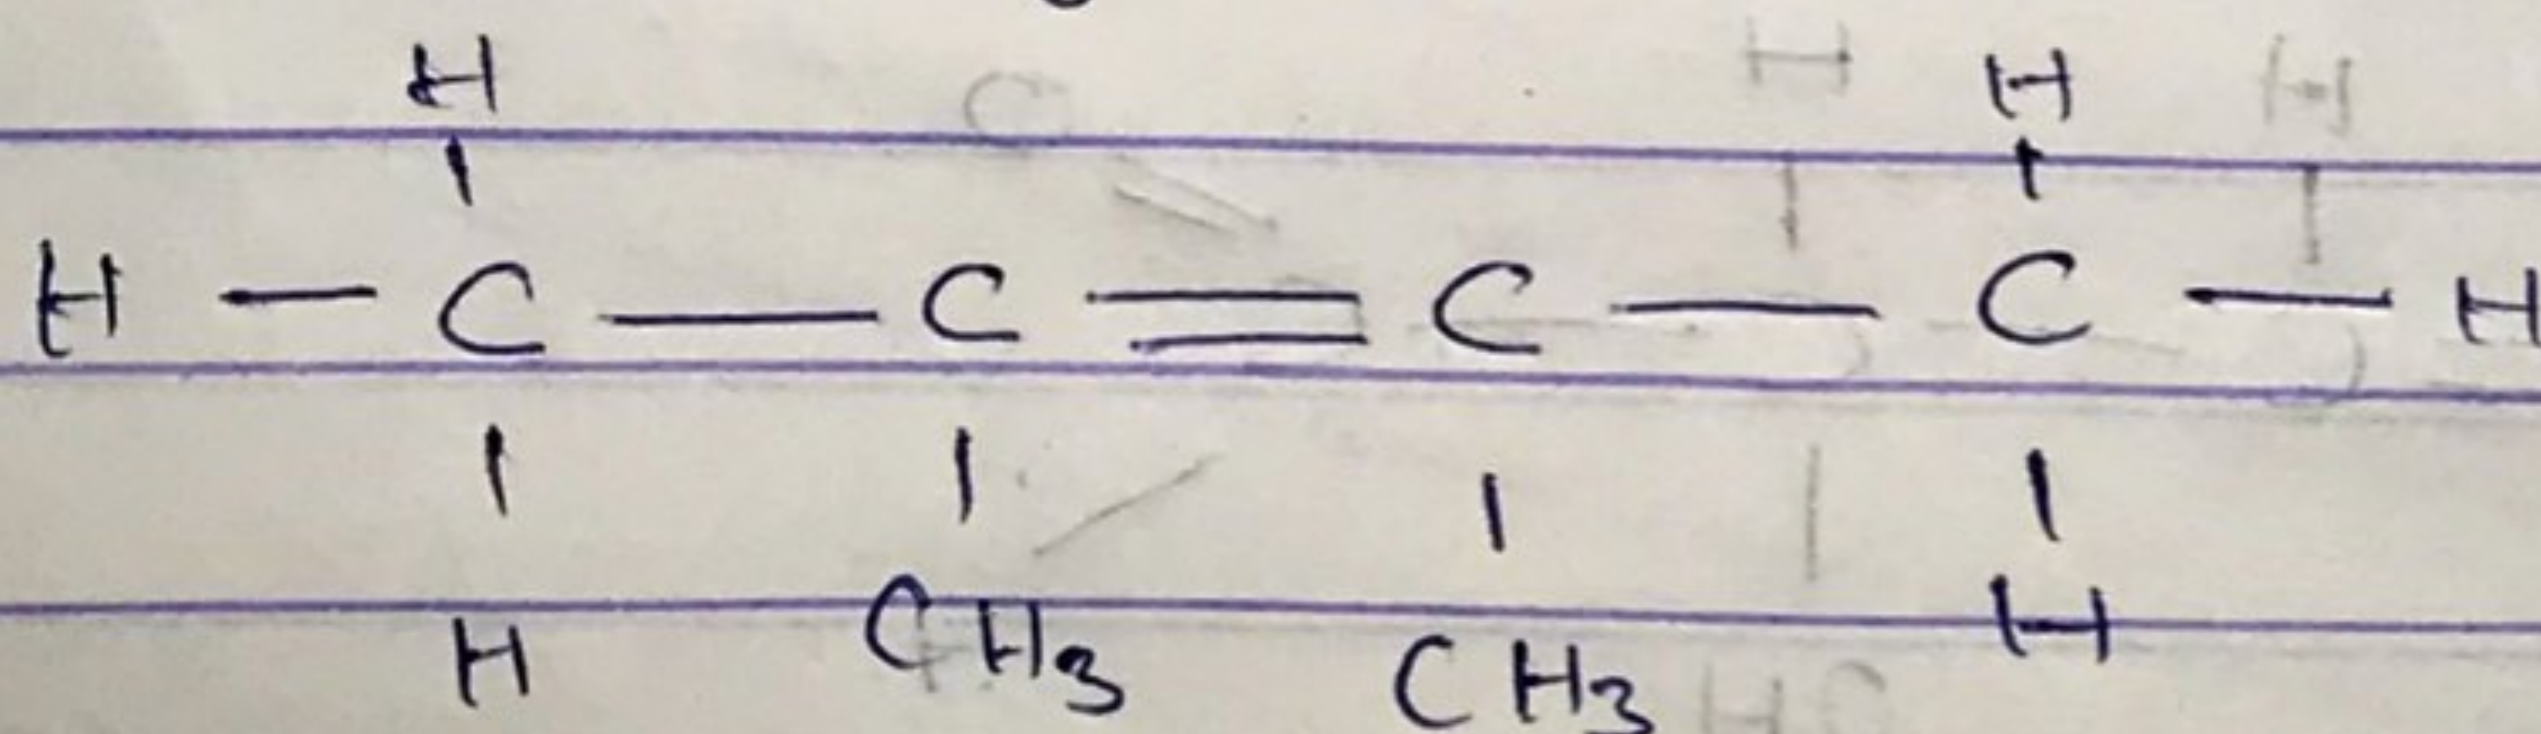 H H
H — C — C = C — C — H
H CH3 CH3 H